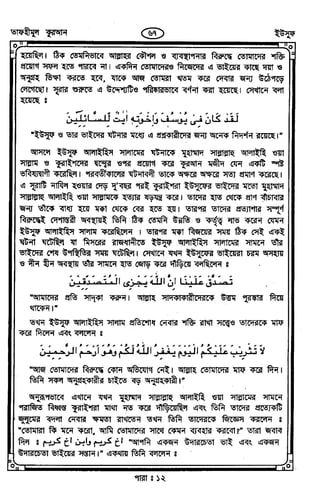 তাফহীমুল কুরআন
৬৭
ইউসুফ
হয়েছিল। ঠিক তেমনিভাবে আল্লাহর কৌশল ও ব্যবস্থাপনার বিরুদ্ধে তোমাদের শক্তি
প্রয়োগ সফল হতে পারবে না। একদিন তোমাদেরও নিজেদের এ ভাইয়ের কাছে দয়া ও
অনুগ্রহ ভিক্ষা করতে হবে, যাকে আজ তোমরা খতম করে দেবার জন্য উঠেপড়ে
লেগেছো। সূরার শুরুতে এ উদ্দেশ্যটিও পরিষ্কারভাবে বর্ণনা করা হয়েছে। সেখানে বলা
হয়েছে ঃ
لَقَدْ كَانَ فِى يُوسُفَ وَاِخْوَتِهٖ اٰيٰتٌ لِّلسَّائِلِيْنَ
"ইউসুফ ও তার ভাইদের ঘটনার মধ্যে এ প্রশ্নকারীদের জন্য অনেক নিদর্শন রয়েছে।"
আসলে ইউসুফ আলাইহিস সালামের ঘটনাকে মুহাম্মাদ সাল্লাল্লাহু আলাইহি ওয়া
সাল্লাম ও কুরাইশদের দ্বন্দ্বের ওপর প্রয়োগ করে কুরআন মজীদ যেন একটি স্পষ্ট
ভবিষ্যদ্বাণী করেছিল। পরবর্তীকালের ঘটনাবলী তাকে অক্ষরে অক্ষরে সত্য প্রমাণ করেছে।
এ সূরাটি নাযিল হওয়ার দেড় দু'বছর পরই কুরাইশরা ইউসুফের ভাইদের মতো মুহাম্মাদ
সাল্লাল্লাহু আলাইহি ওয়া সাল্লামকে হত্যার ষড়যন্ত্র করে। তাদের হাত থেকে প্রাণ বাঁচাবার
জন্য তাঁকে বাধ্য হয়ে মক্কা থেকে বের হতে হয়। তারপর তাদের প্রত্যাশার সম্পূর্ণ
বিরুদ্ধেই দেশান্তরী অবস্থায়ই তিনি ঠিক তেমনি উন্নতি ও কর্তৃত্ব লাভ করেন যেমন
ইউসুফ আলাইহিস সালাম করেছিলেন। তারপর মক্কা বিজয়ের সময় ঠিক সেই একই
ঘটনা ঘটেছিল যা মিসরের রাজধানীতে ইউসুফ আলাইহিস সালামের সামনে তাঁর
ভাইদের শেষ উপস্থিতির সময় ঘটেছিল। সেখানে যখন ইউসুফের ভাইয়েরা চরম অসহায়
ও দীন হীন অবস্থায় তাঁর সামনে হাত জোড় করে দাঁড়িয়ে বলছিলেন ঃ
تَصَدَّقْ عَلَيْنَا اِنَّ اللّٰهَ يَجْزِى الْمُتَصَدِّقِيْنَ
"আমাদের প্রতি সাদ্‌কা করুন। আল্লাহ সাদ্‌কাকারীদেরকে উত্তম পুরস্কার দিয়ে
থাকেন।"
তখন ইউসুফ আলাইহিস সালাম প্রতিশোধ নেবার শক্তি রাখা সত্ত্বেও তাদেরকে মাফ
করে দিলেন এবং বললেন ঃ
لَا تَثْرِيْبَ عَلَيْكُمُ الْيَوْمَ يَغْفِرُ اللّٰهُ لَكُمْ وَهُوَ اَرْحَمُ الرّٰحِمِيْنَ
"আজ তোমাদের বিরুদ্ধে কোন অভিযোগ নেই। আল্লাহ তোমাদের মাফ করে দিন।
তিনি সকল অনুগ্রহকারীর চাইতে বড় অনুগ্রহকারী।"
অনুরূপভাবে এখানে যখন মুহাম্মাদ সাল্লাল্লাহু আলাইহি ওয়া সাল্লামের সামনে
পরাজিত বিধ্বস্ত কুরাইশরা মাথা নত করে দাঁড়িয়েছিল এবং তিনি তাদের প্রত্যেকটি
জুলুমের বদলা নেবার ক্ষমতা রাখতেন তখন তিনি তাদেরকে জিজ্ঞেস করলেন ঃ
"তোমরা কি মনে করো, আমি তোমাদের সাথে কেমন ব্যবহার করবো?" তারা জবাব
দিল ঃ اخ كريم وابن اخ كريم "আপনি একজন উদারচেতা ভাই এবং একজন
উদারচেতা ভাইয়ের সন্তান।" একথায় তিনি বললেন ঃ
পারা ঃ ১২